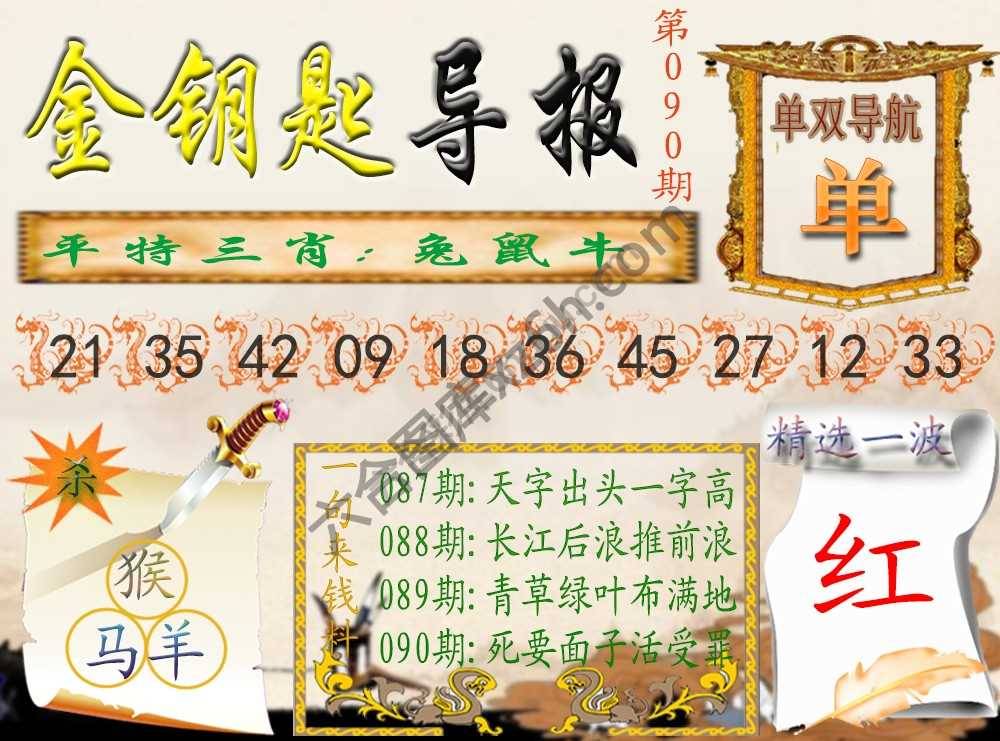 金钥匙导报
第090期
单双导航
单
平特三肖:兔鼠牛
21 35 42 09 18 36 45 27 12 33
杀
猴
马羊
一句来钱料
087期:天字出头一字高
088期:长江后浪推前浪
089期:青草绿叶布满地
090期:死要面子活受罪
精选一波
红